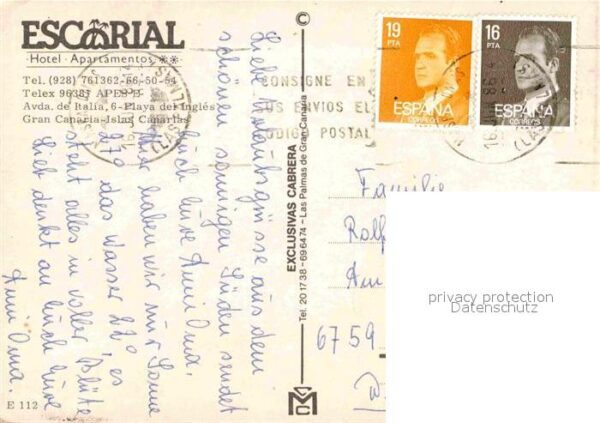 ESCORIAL
Hotel - Apartamentos
Tel. (928) 761362-66-50-54
Telex 96387 APES-E
Avda. de Italia, 6-Playa del Inglés
Gran Canaria-Islas Canarias
Liebe Urlaubsgrüsse aus dem
schönen sonnigen Süden sendet
Euch Eure Anni Oma.
Hier haben wir nur Sonne
27° das Wasser 22°, es
steht alles in voller Blüte
Lieb denkt an Euch Eure
Anni Oma.
E 112
EXCLUSIVAS CABRERA
Tel. 20 17 38 - 69 64 74 - Las Palmas de Gran Canaria
CONSIGNE EN
SUS ENVIOS EL
CODIGO POSTAL
19
PTA
ESPAÑA
CORREOS
16
PTA
ESPAÑA
CORREOS
Familie
Rolf
Am
6759
privacy protection
Datenschutz